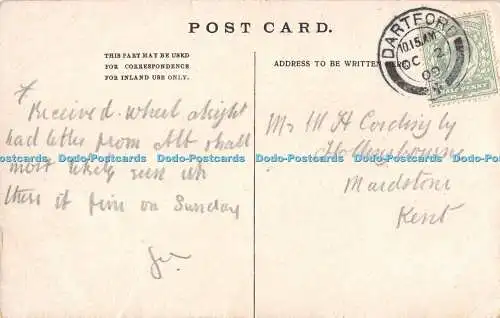 POST CARD.
THIS PART MAY BE USED
FOR CORRESPONDENCE
FOR INLAND USE ONLY.
ADDRESS TO BE WRITTEN HERE
DARTFORD
10.15 AM
OC 2
09
HALF PENNY
Received wheel alright
had letter from Alf shall
most likely run up
there if fine on Sunday
Mr W H Cordingly
Hollingbourne
Maidstone
Kent
Dodo-Postcards Dodo-Postcards Dodo-Postcards Dodo-Postcards Dodo-Postcards Dodo-Postcards